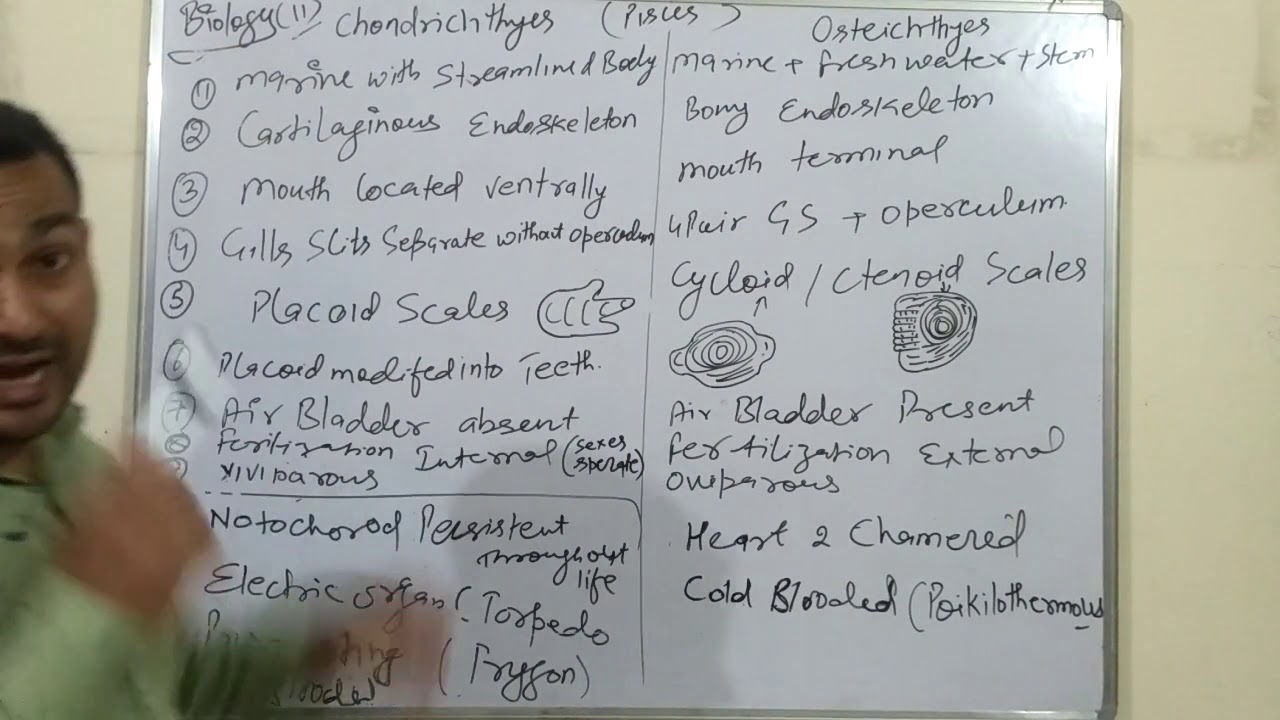 Biology(11) Chondrichthyes (Pisces)
Osteichthyes
① Marine with Streamlined Body
② Cartilaginous Endoskeleton
③ Mouth Located Ventrally
④ Gills Slits Separate without operculum
⑤ Placoid Scales
⑥ Placoid modifed into Teeth.
⑦ Air Bladder absent
⑧ Ferilization Internal (sexes sperate)
Viviparous
Notochorod Persistent
Throughout life
Electric organ (Torpedo
(Trygon)
Marine + fresh water + stem
Bony Endoskeleton
mouth terminal
4 Pair GS + operculum
Cycloid / Ctenoid Scales
Air Bladder Present
Fertilization External
Oviparous
Heart 2 Chamered
Cold Blooded (Poikilothermous